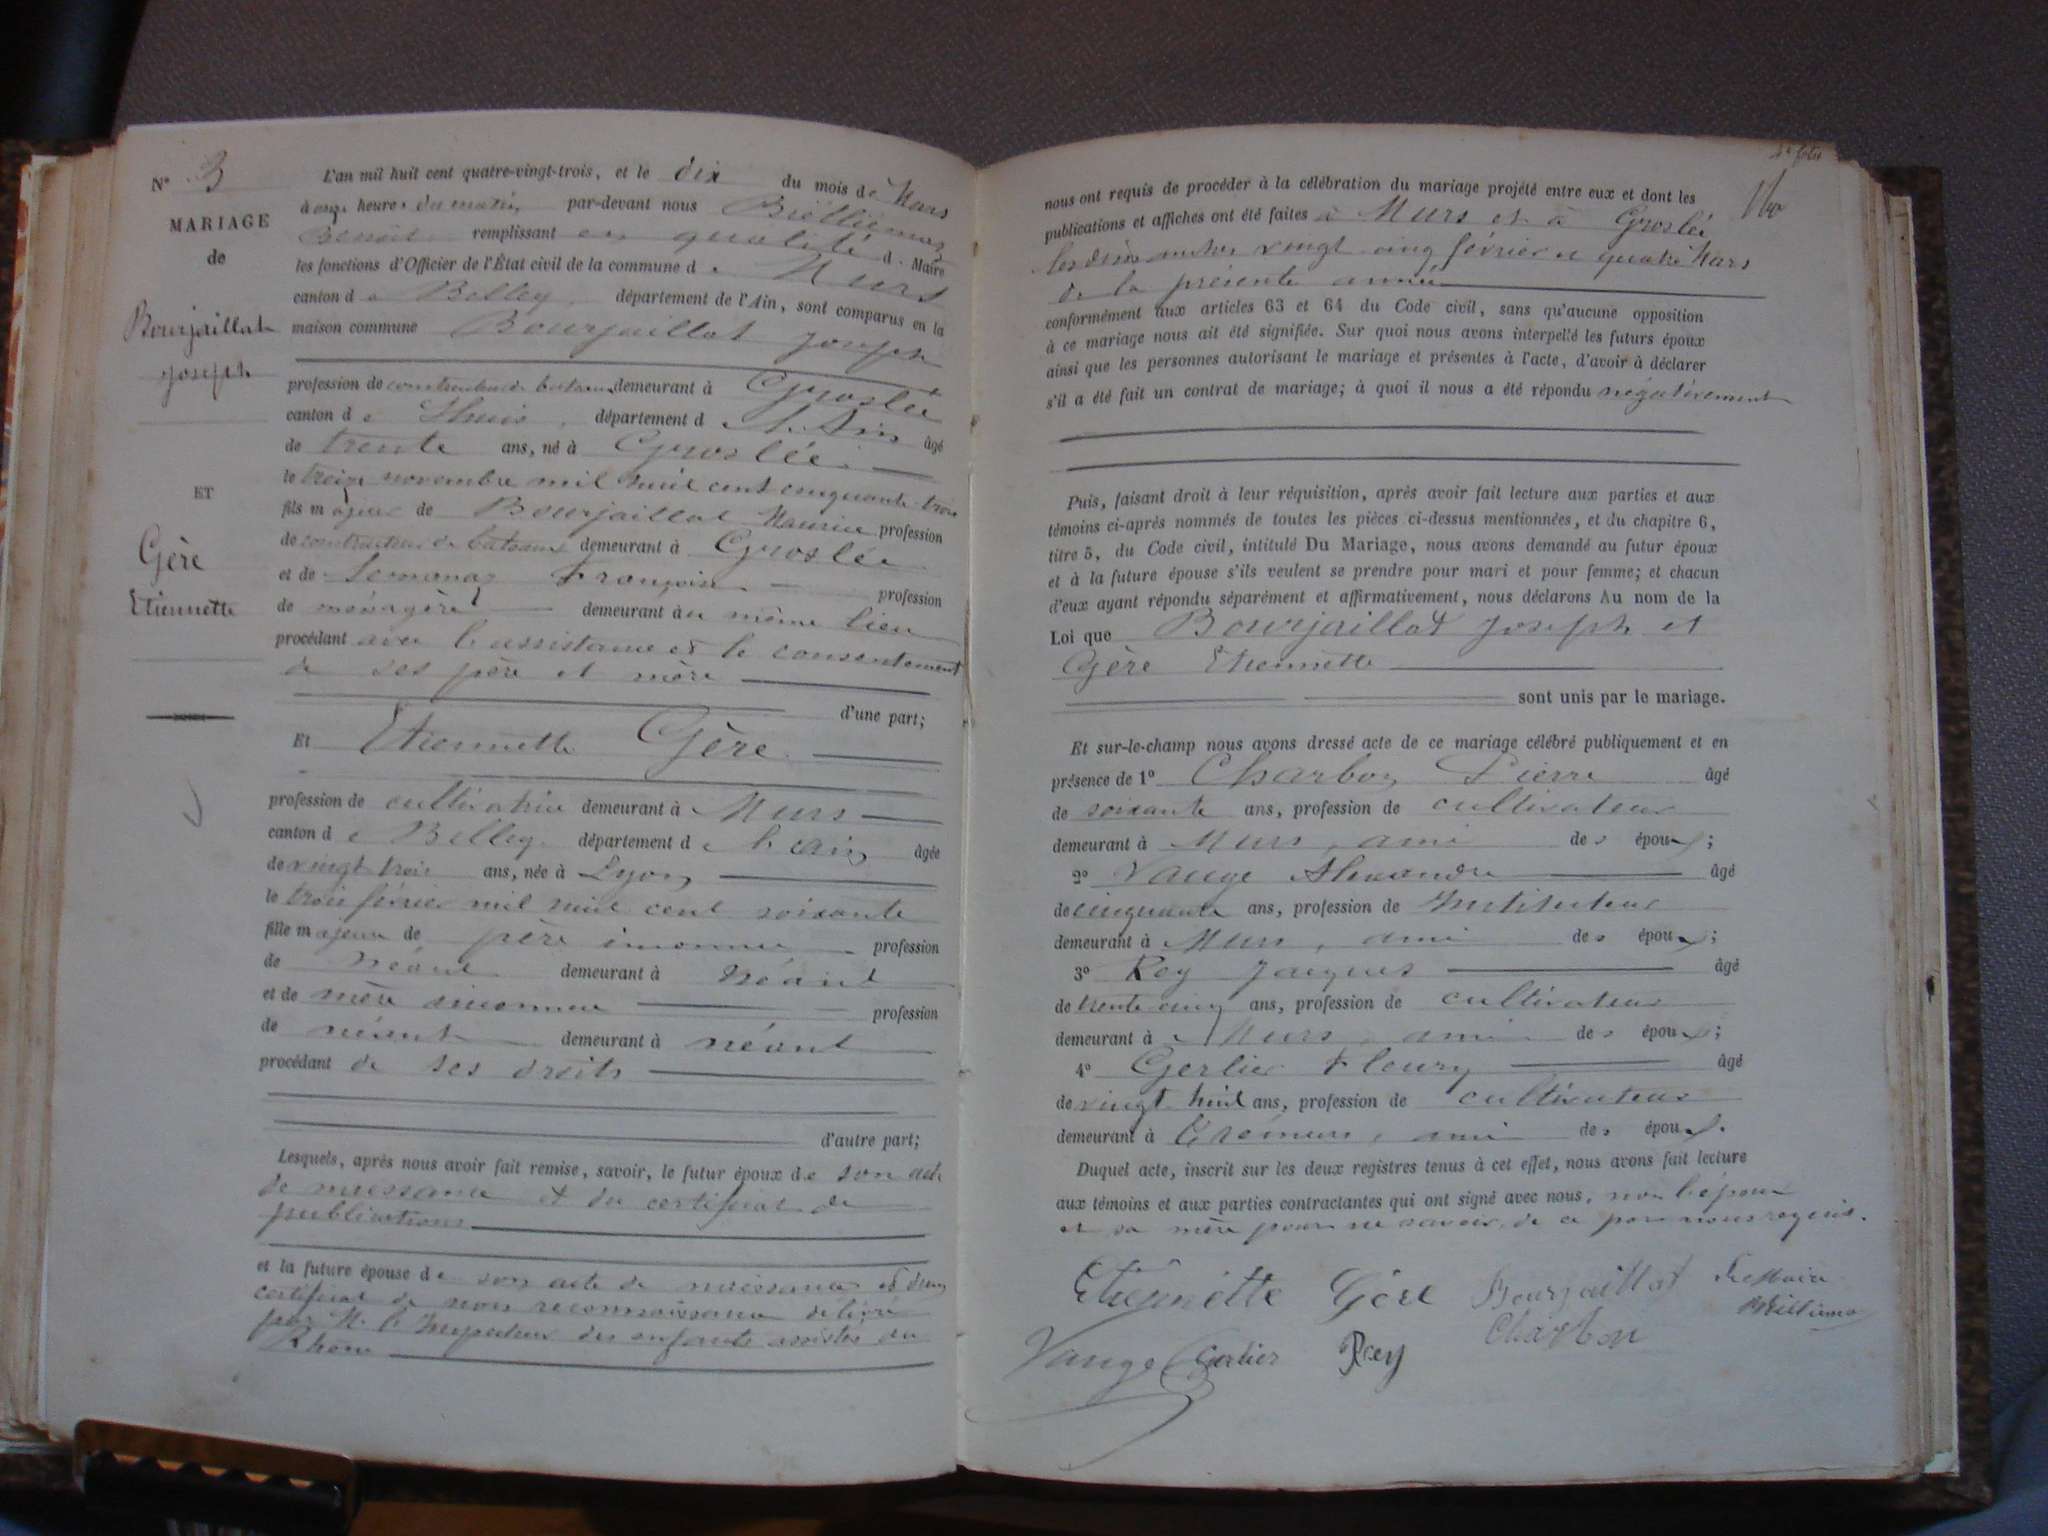 N° 3
MARIAGE
de
Bourjaillat
Joseph
ET
Gère
Etiennette
L'an mil huit cent quatre-vingt-trois, et le dix du mois de Mars
à onze heures du matin par-devant nous
Benoît remplissant en qualité d. Maire
les fonctions d'Officier de l'État civil de la commune de Murs
canton de Belley département de l'Ain, sont comparus en la
maison commune Bourjaillat Joseph
profession de constructeur de bateaux demeurant à Groslée
canton de Lhuis, département de l'Ain âgé
de trente ans, né à Groslée
le treize novembre mil huit cent cinquante trois
fils majeur de Bourjaillat Maurice profession
de constructeur de bateaux demeurant à Groslée
et de Françoise profession
de ménagère demeurant au même lieu
procédant avec l'assistance et le consentement
de ses père et mère
d'une part;
Et Etiennette Gère
profession de cultivatrice demeurant à Murs
canton de Belley département de l'ain âgée
de vingt trois ans, née à Lyon
le trois février mil huit cent soixante
fille majeure de père inconnu profession
de néant demeurant à néant
et de mère inconnue profession
de néant demeurant à néant
procédant de ses droits
d'autre part;
Lesquels, après nous avoir fait remise, savoir, le futur époux de son acte
de naissance et du certificat de
publications
et la future épouse de son acte de naissance et d'un
certificat de non reconnaissance délivré
par M. l'Inspecteur des enfants assistés du
Rhône
nous ont requis de procéder à la célébration du mariage projeté entre eux et dont les
publications et affiches ont été faites à Murs et à Groslée
les dimanches vingt cinq février et quatre Mars
de la présente année
conformément aux articles 63 et 64 du Code civil, sans qu'aucune opposition
à ce mariage nous ait été signifiée. Sur quoi nous avons interpellé les futurs époux
ainsi que les personnes autorisant le mariage et présentes à l'acte, d'avoir à déclarer
s'il a été fait un contrat de mariage; à quoi il nous a été répondu négativement
Puis, faisant droit à leur réquisition, après avoir fait lecture aux parties et aux
témoins ci-après nommés de toutes les pièces ci-dessus mentionnées, et du chapitre 6,
titre 5, du Code civil, intitulé Du Mariage, nous avons demandé au futur époux
et à la future épouse s'ils veulent se prendre pour mari et pour femme; et chacun
d'eux ayant répondu séparément et affirmativement, nous déclarons Au nom de la
Loi que Bourjaillat Joseph et
Gère Etiennette
sont unis par le mariage.
Et sur-le-champ nous avons dressé acte de ce mariage célébré publiquement et en
présence de 1° Charbon Pierre âgé
de soixante ans, profession de cultivateur
demeurant à Murs, ami des époux;
2° Vauge Alexandre âgé
de cinquante ans, profession de Instituteur
demeurant à Murs, ami des époux;
3° Rey Jacques âgé
de trente cinq ans, profession de cultivateur
demeurant à Murs, ami des époux;
4° Gerlier Fleury âgé
de vingt huit ans, profession de cultivateur
demeurant à ami des époux.
Duquel acte, inscrit sur les deux registres tenus à cet effet, nous avons fait lecture
aux témoins et aux parties contractantes qui ont signé avec nous, non l'époux
et sa mère pour ne savoir, de ce par nous requis.
Etiennette Gère Bourjaillat Le Maire
Charbon
Vauge Gerlier Rey